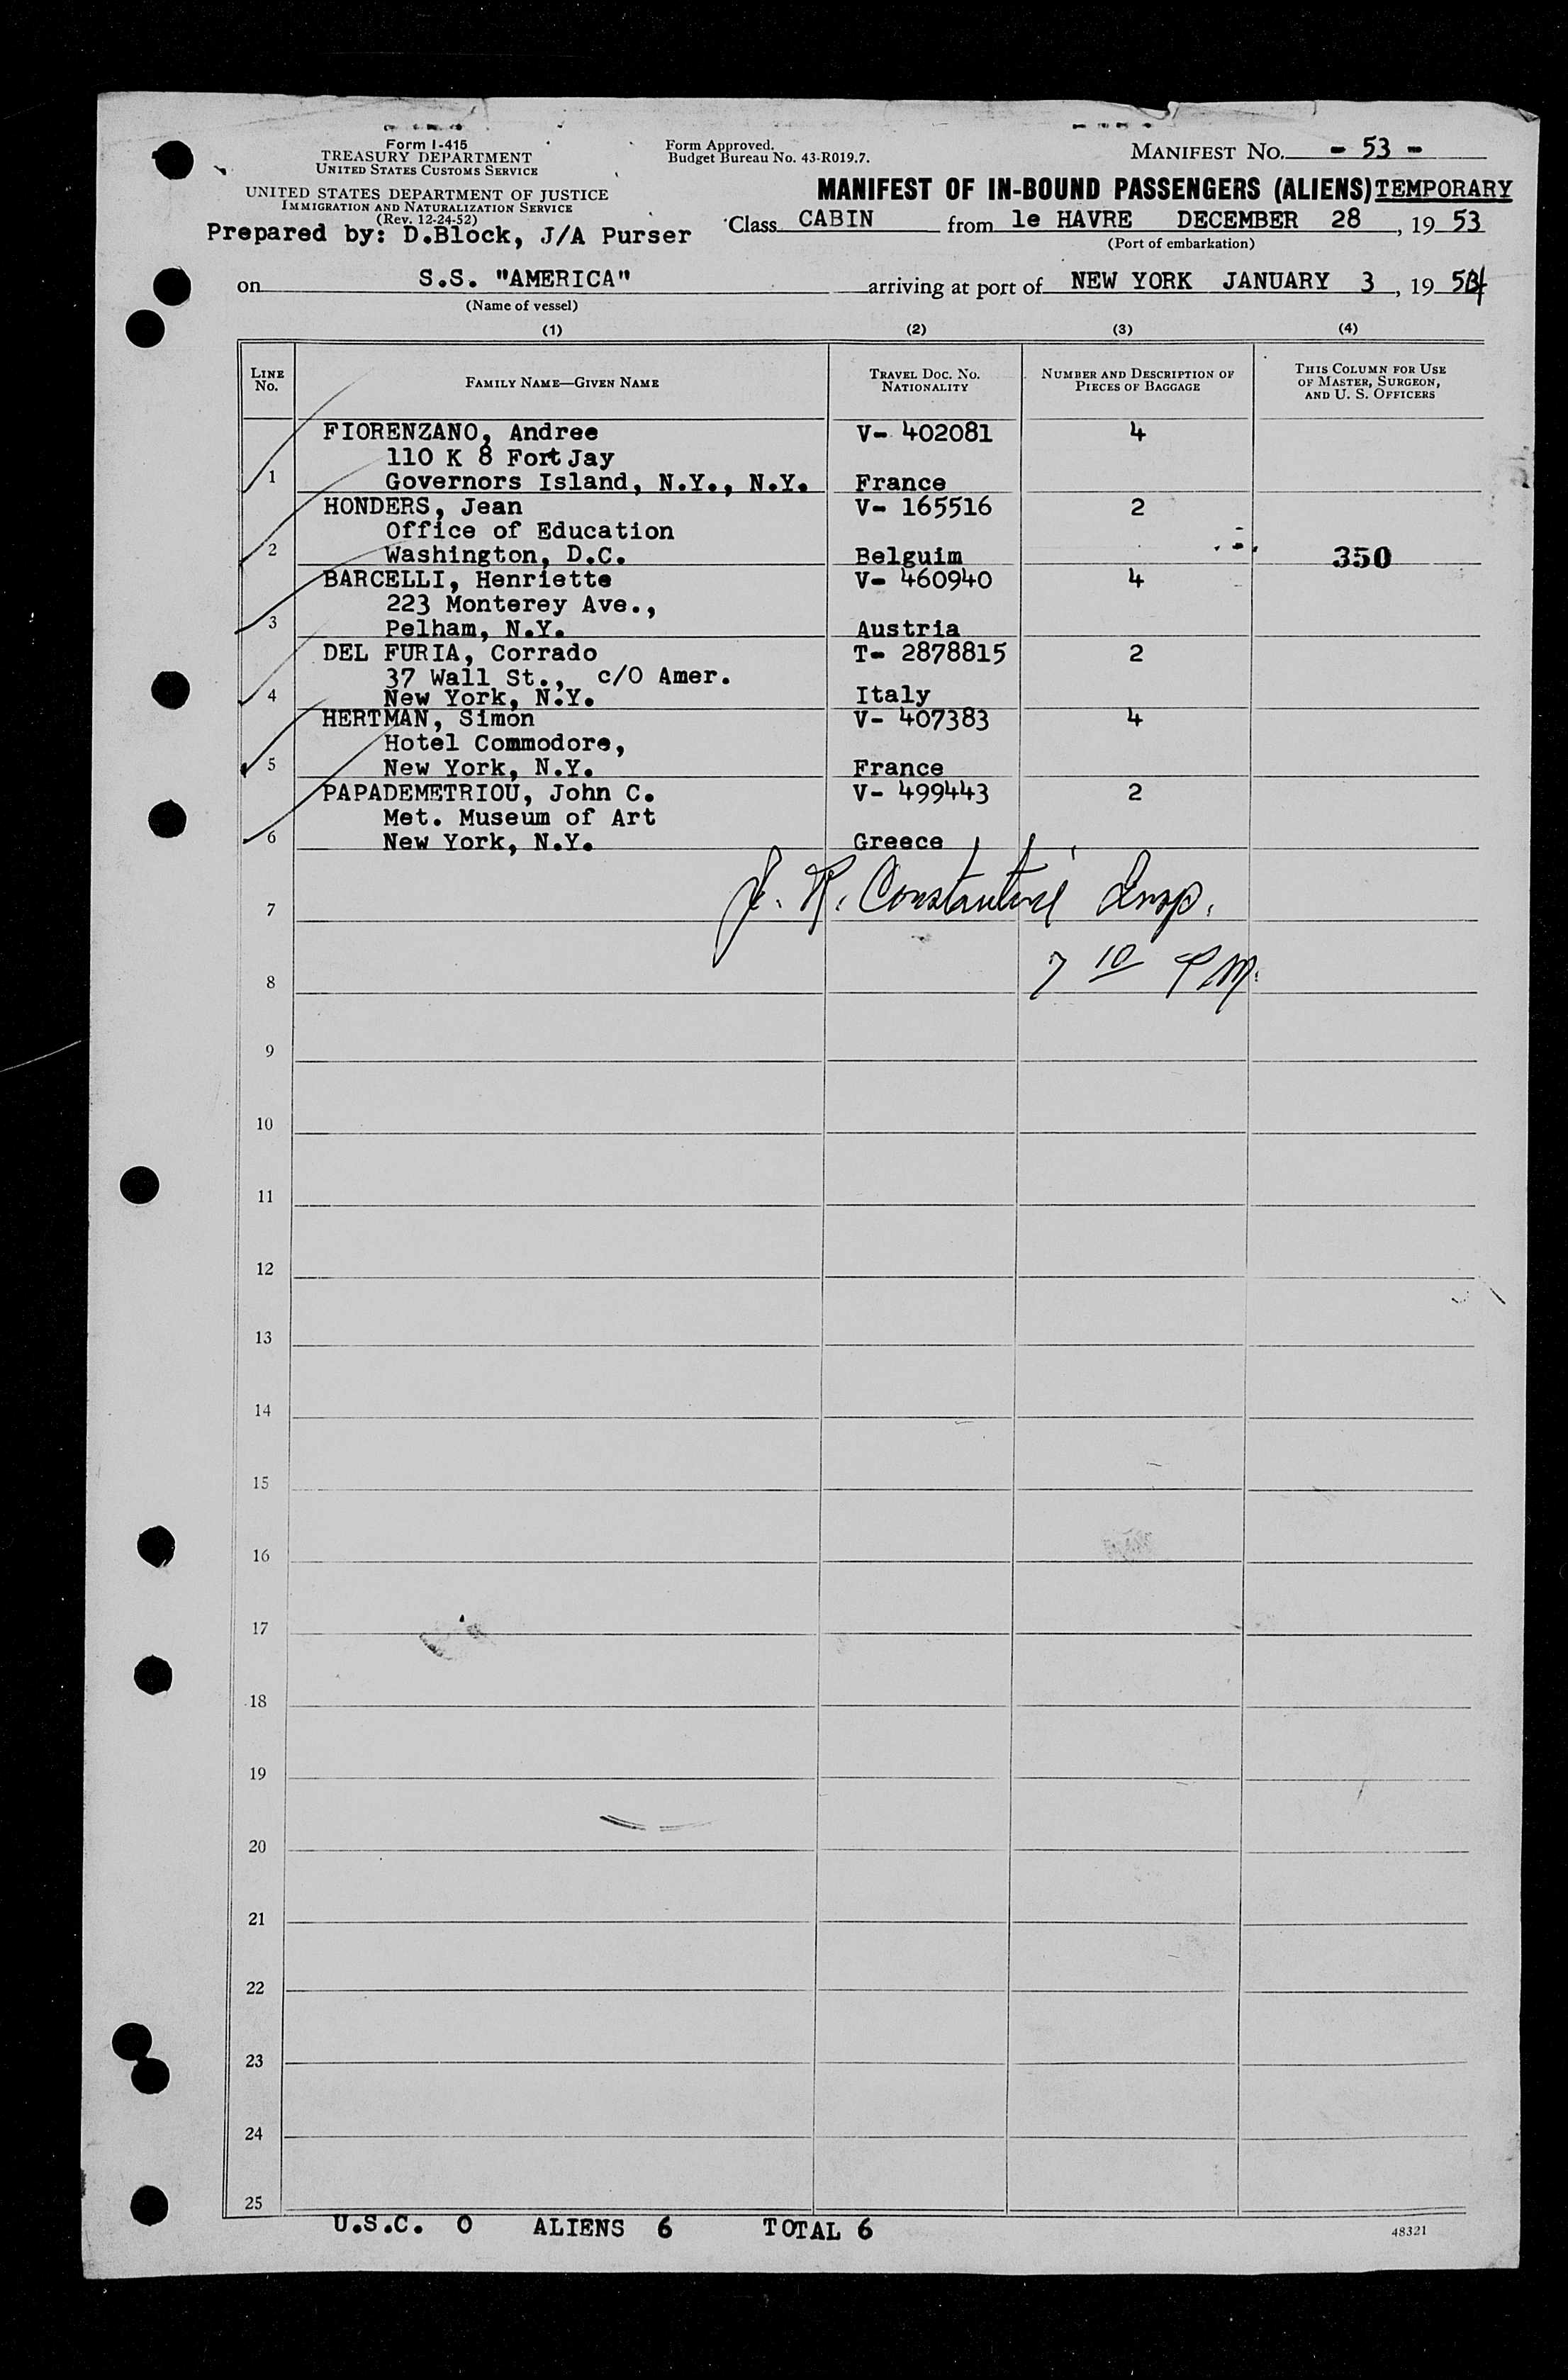 Form I-415
TREASURY DEPARTMENT
UNITED STATES CUSTOMS SERVICE
UNITED STATES DEPARTMENT OF JUSTICE
IMMIGRATION AND NATURALIZATION SERVICE
(Rev. 12-24-52)
Prepared by: D.Block, J/A Purser
Form Approved.
Budget Bureau No. 43-R019.7.
MANIFEST NO. - 53 -
MANIFEST OF IN-BOUND PASSENGERS (ALIENS) TEMPORARY
Class CABIN from le HAVRE DECEMBER 28, 19 53
(Port of embarkation)
on S.S. "AMERICA" arriving at port of NEW YORK JANUARY 3, 19 54
(Name of vessel)
(1) (2) (3) (4)
LINE NO. FAMILY NAME—GIVEN NAME TRAVEL DOC. NO. NATIONALITY NUMBER AND DESCRIPTION OF PIECES OF BAGGAGE THIS COLUMN FOR USE OF MASTER, SURGEON, AND U. S. OFFICERS
FIORENZANO, Andree V- 402081 4
110 K 8 Fort Jay
1 Governors Island, N.Y., N.Y. France
HONDERS, Jean V- 165516 2
Office of Education
2 Washington, D.C. Belguim 350
BARCELLI, Henriette V- 460940 4
223 Monterey Ave.,
3 Pelham, N.Y. Austria
DEL FURIA, Corrado T- 2878815 2
37 Wall St., c/O Amer.
4 New York, N.Y. Italy
HERTMAN, Simon V- 407383 4
Hotel Commodore,
5 New York, N.Y. France
PAPADEMETRIOU, John C. V- 499443 2
Met. Museum of Art
6 New York, N.Y. Greece
J. R. Constantine Insp.
7
7 10 PM.
8
9
10
11
12
13
14
15
16
17
18
19
20
21
22
23
24
25
U.S.C. 0 ALIENS 6 TOTAL 6
48321